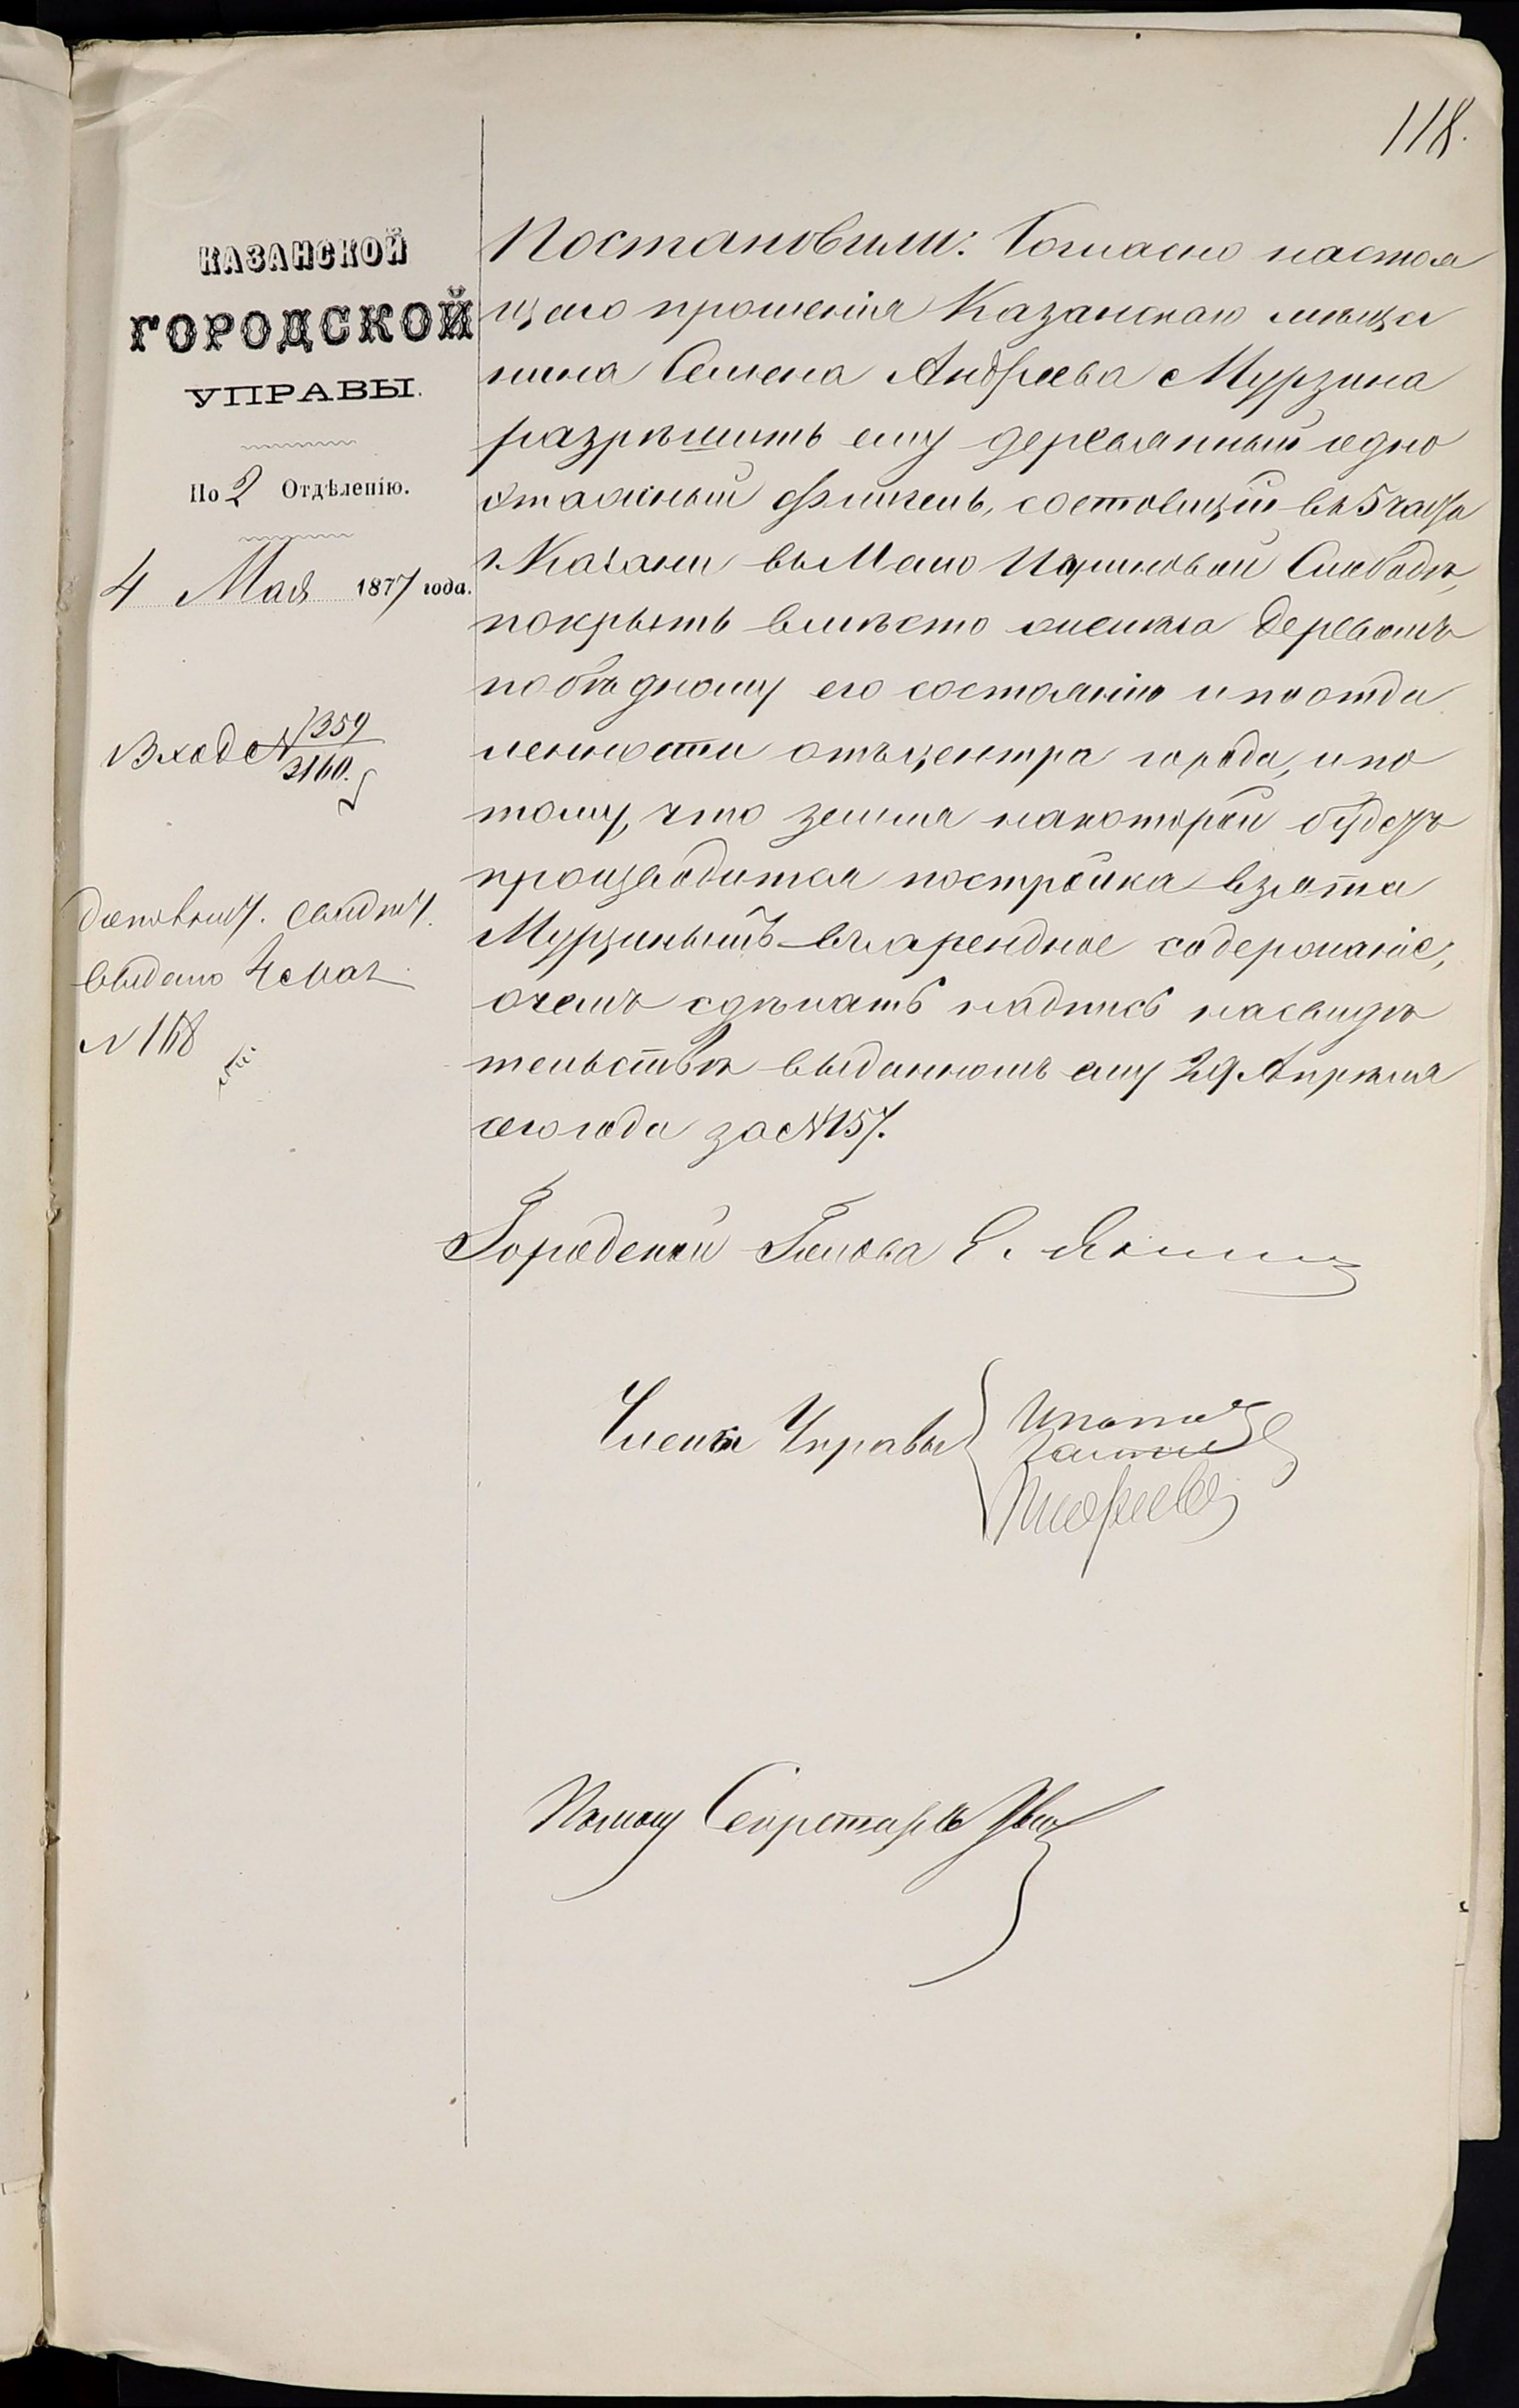 118.
КАЗАНСКОЙ
ГОРОДСКОЙ
УПРАВЫ.
По 2 Отдѣленію.
4 Мая 1877 года.
Входе № 1359
3160.
выдано 4 мая
№ 168
Постановили: Согласно настоя
щаго прошенія Казанскаго мѣща
нина Семена Андреева Мурзина
разрѣшить ему деревянный одно
этажный флигель, состоящій въ 5 части
г. Казани въ Мало Игумновой Слободѣ,
покрыть вмѣсто желѣза деревомъ
по бѣдному его состоянію и по отда
ленности отъ центра города, и по
тому, что земля на которой будетъ
производится постройка взята
Мурзинымъ въ арендное содержаніе,
о чемъ сдѣлать надпись на свидѣ
тельствѣ выданномъ ему 29 Апрѣля
сего года за № 157.
Городской Голова Э. Янишъ
Члены Управы
Помощ Секретаря